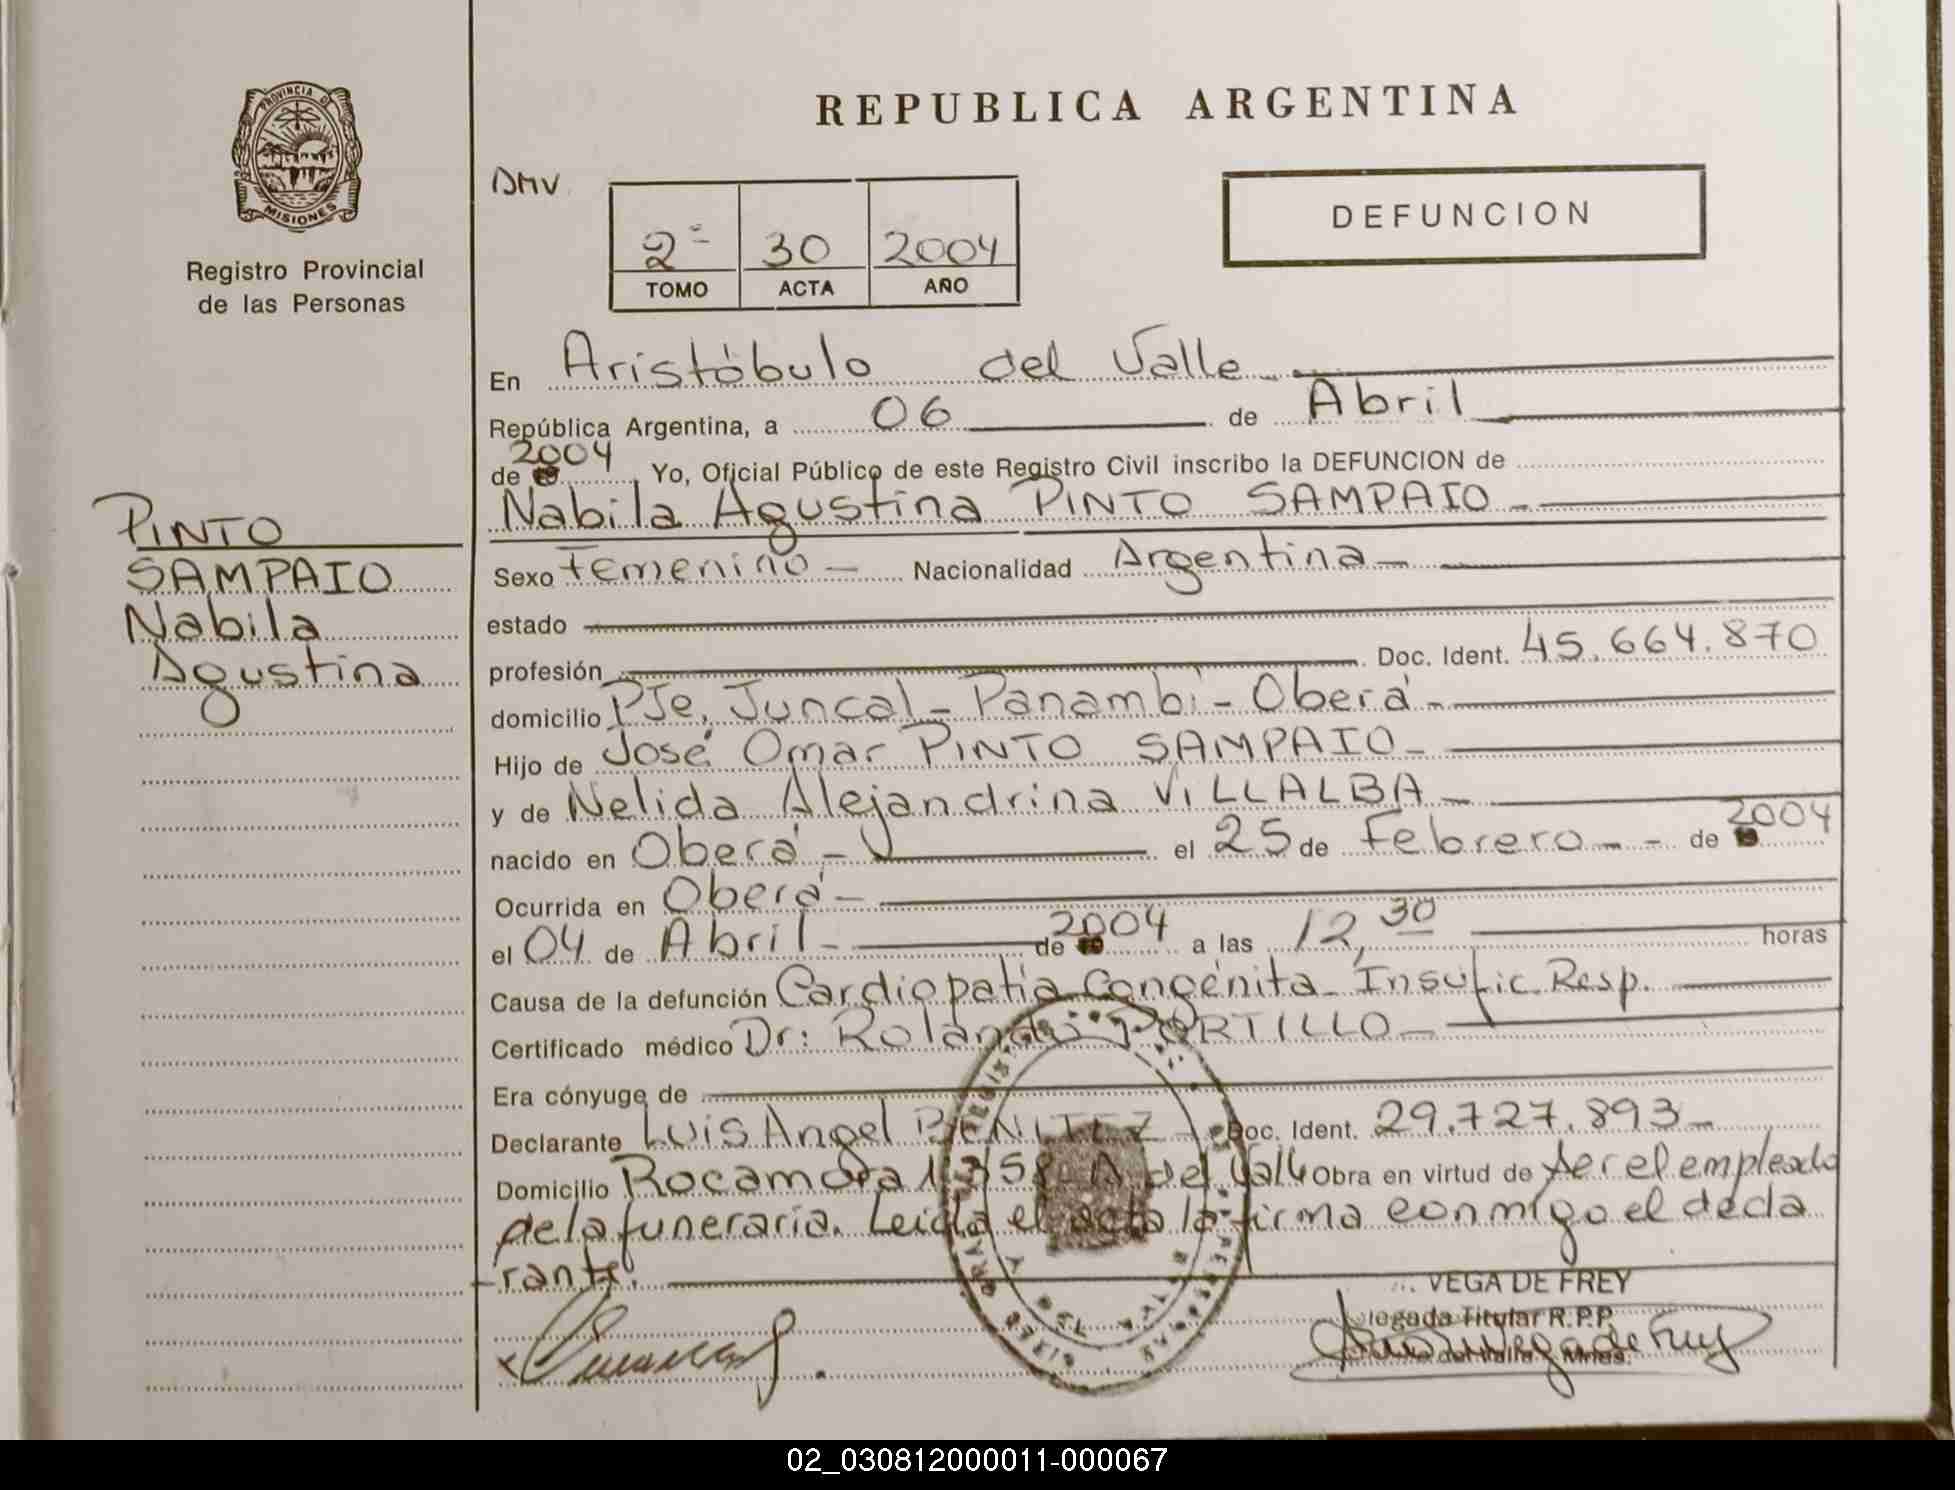 PROVINCIA DE
MISIONES
Registro Provincial
de las Personas
REPUBLICA ARGENTINA
DMV
2º 30 2004
TOMO ACTA AÑO
DEFUNCION
En Aristóbulo del Valle
República Argentina, a 06 de Abril
de 2004 Yo, Oficial Público de este Registro Civil inscribo la DEFUNCION de
Nabila Agustina PINTO SAMPAIO
PINTO
SAMPAIO
Nabila
Agustina
Sexo Femenino - Nacionalidad Argentina
estado
profesión Doc. Ident. 45.664.870
domicilio Pje. Juncal - Panambi - Oberá
Hijo de José Omar PINTO SAMPAIO
y de Nelida Alejandrina VILLALBA
nacido en Oberá el 25 de Febrero de 2004
Ocurrida en Oberá
el 04 de Abril de 2004 a las 12,30 horas
Causa de la defunción Cardiopatia Congénita - Insufic. Resp.
Certificado médico Dr: Rolando PORTILLO
Era cónyuge de
Declarante Luis Angel BENITEZ - Doc. Ident. 29.727.893
Domicilio Rocamora A. del Valle Obra en virtud de ser el empleado
de la funeraria. Leida el acta la firma conmigo el decla
-rante.
VEGA DE FREY
Delegada Titular R.P.P.
02_030812000011-000067